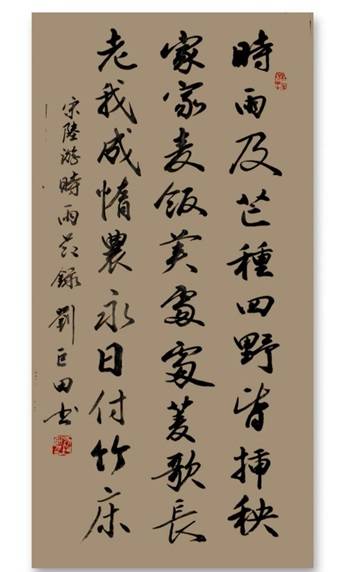 時雨及芒種四野皆插秧
家家麦飯美處處菱歌長
老我成惰農永日付竹床
宋陸游時雨节録 劉巨田书